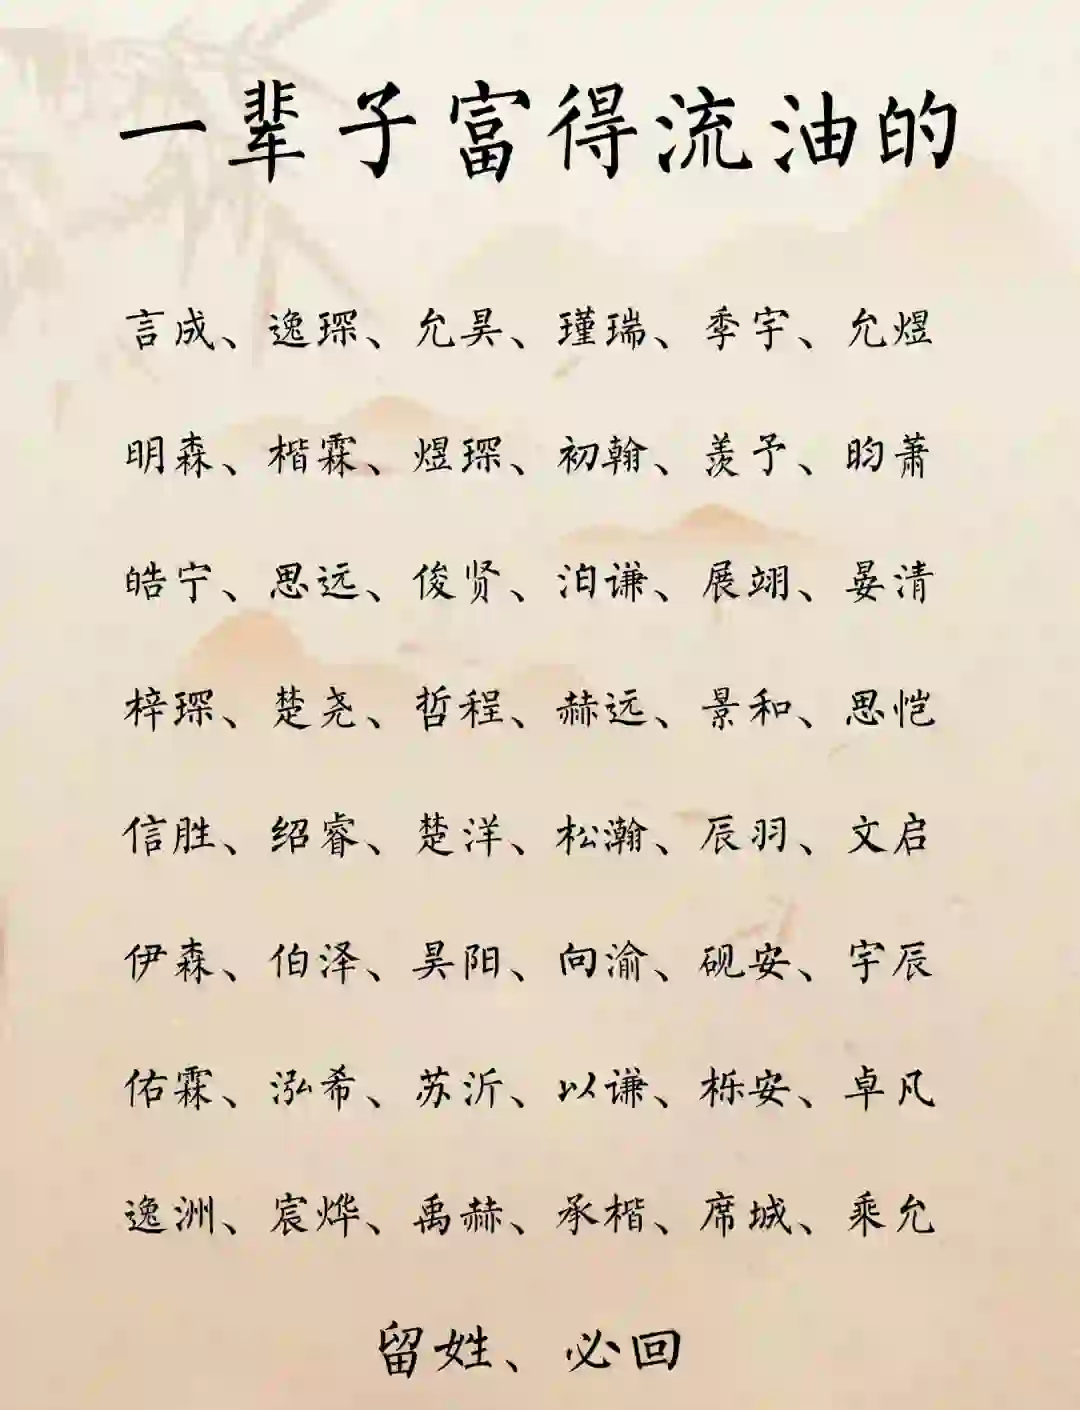 一辈子富得流油的
言成、逸琛、允昊、瑾瑞、季宇、允煜
明森、楷霖、煜琛、初翰、羡予、昀萧
皓宁、思远、俊贤、泊谦、展翊、晏清
梓琛、楚尧、哲程、赫远、景和、思恺
信胜、绍睿、楚洋、松瀚、辰羽、文启
伊森、伯泽、昊阳、向渝、砚安、宇辰
佑霖、泓希、苏沂、以谦、栎安、卓凡
逸洲、宸烨、禹赫、承楷、席城、乘允
留姓、必回